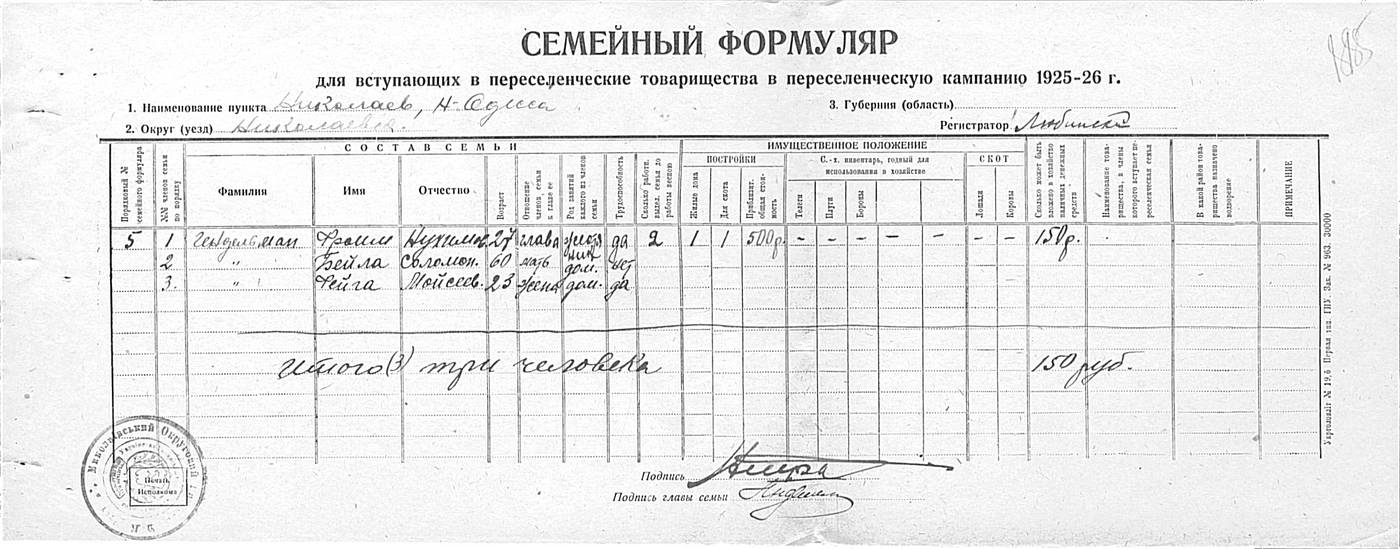 1885
СЕМЕЙНЫЙ ФОРМУЛЯР
для вступающих в переселенческие товарищества в переселенческую кампанию 1925-26 г.
1. Наименование пункта Николаев, Н-Одесса 3. Губерния (область)
2. Округ (уезд) Николаевск. Регистратор Любински
СОСТАВ СЕМЬИ ИМУЩЕСТВЕННОЕ ПОЛОЖЕНИЕ
ПОСТРОЙКИ С.-х. инвентарь, годный для использования в хозяйстве СКОТ
Порядковый № семейного формуляра №№ членов семьи по порядку Фамилия Имя Отчество Возраст Отношение членов семьи к главе ее Род занятий каждого из членов семьи Трудоспособность Сколько работн. выдел. семья до работы весною Жилые дома Для скота Приблизит. общая стоимость Телеги Плуги Бороны Лошади Коровы Сколько может быть вложено в хозяйство наличных денежных средств Наименование товарищества, в члены которого вступает переселенческая семья В какой район товарищества назначено водворение ПРИМЕЧАНИЕ
5 1 Гендельман Фроим Нухимов. 27 глава да 2 1 1 500р. – – – – – – – 150р.
2 " Бейла Соломон. 60 мать дом. нет
3. " Фейга Мойсеев. 23 жена дом. да
итого (3) три человека 150 руб.
Миколаївський Округовий
Печать Исполкома
Подпись
Подпись главы семьи
Укрголовліт № 19,6 Первая тип. ГПУ. Зак. № 963. 30000